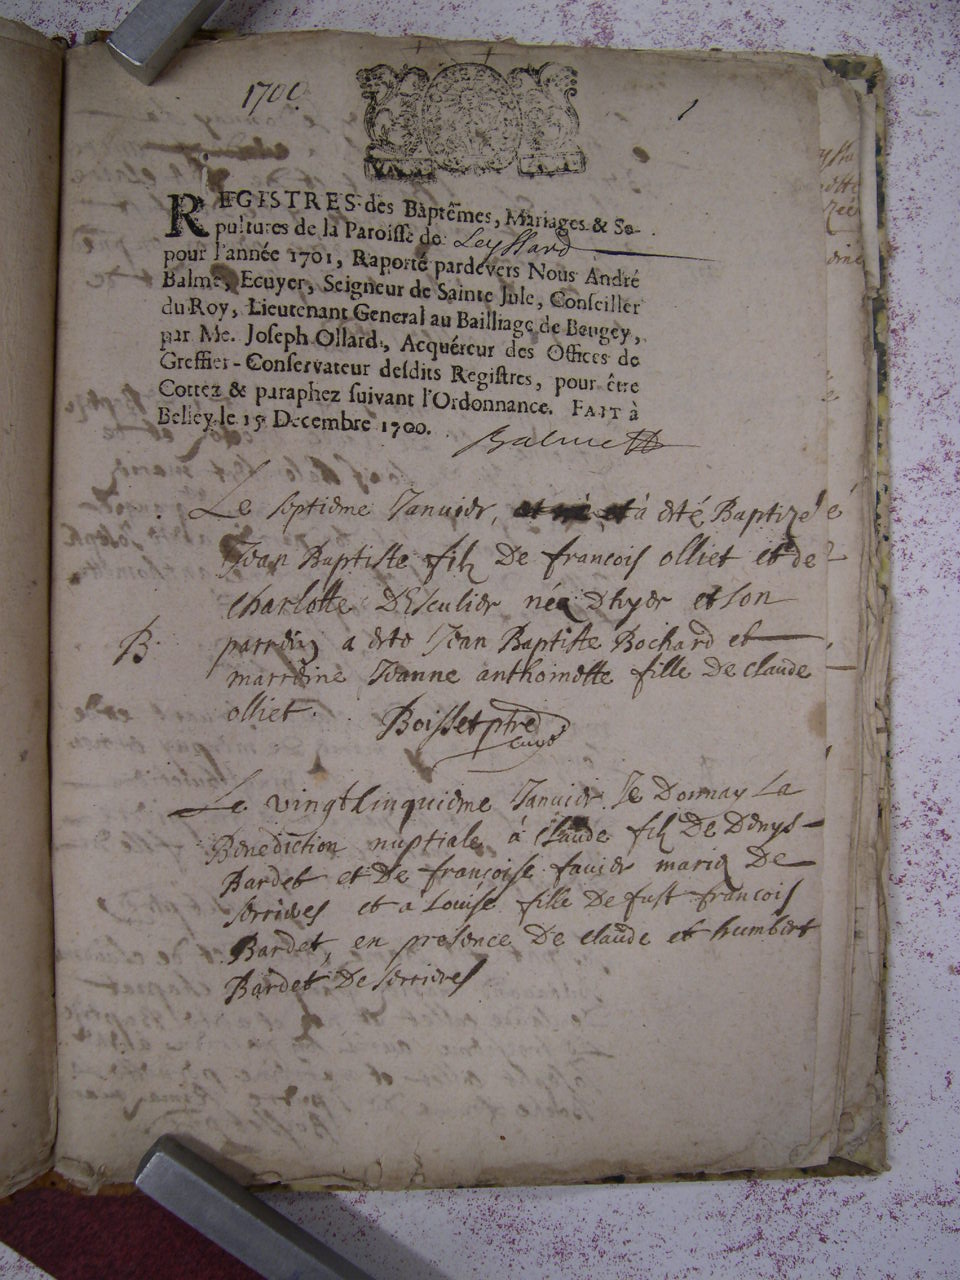 1700
1
REGISTRES des Baptêmes, Mariages & Se-
pultures de la Paroisse de Leyssard
pour l'année 1701, Raporté pardevers Nous André
Balme, Ecuyer, Seigneur de Sainte Jule, Conseiller
du Roy, Lieutenant General au Bailliage de Beugey,
par Me. Joseph Ollard, Acquéreur des Offices de
Greffier-Conservateur desdits Registres, pour être
Cottez & paraphez suivant l'Ordonnance. FAIT à
Belley le 15 Decembre 1700.
Balme
Le septieme Janvier, à eté Baptizé
Jean Baptiste filz De francois olliet et de
charlotte Desculier née Dhyer et son
B. parrein a eté Jean Baptiste Bochard et
marreine Jeanne anthoinette fille De claude
olliet. Boisset ptre
curé
Le vingt cinquieme Janvier Je Donnay La
Benediction nuptiale à claude filz De Denys
Bardet et De françoise favier marié De
serrieres et a Louise fille De fust francois
Bardet, en presence De claude et humbert
Bardet De serrieres